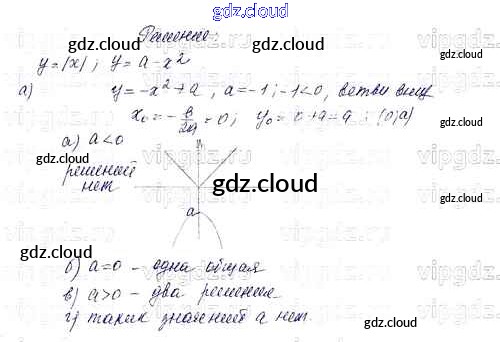 gdz.cloud
Решение:
gdz.cloud gdz.cloud
y=|x|; y = a - x²
a) y = -x² + a, a = -1; -1 < 0, ветви вниз
gdz.cloud
x₀ = - в/2a = 0; y₀ = 0 + a = a; (0; a)
а) a < 0
gdz.cloud gdz.cloud
решений
нет
gdz.cloud
a
gdz.cloud gdz.cloud
б) a = 0 – одна общая
в) a > 0 – два решение
г) таких значений a нет.
gdz.cloud gdz.cloud